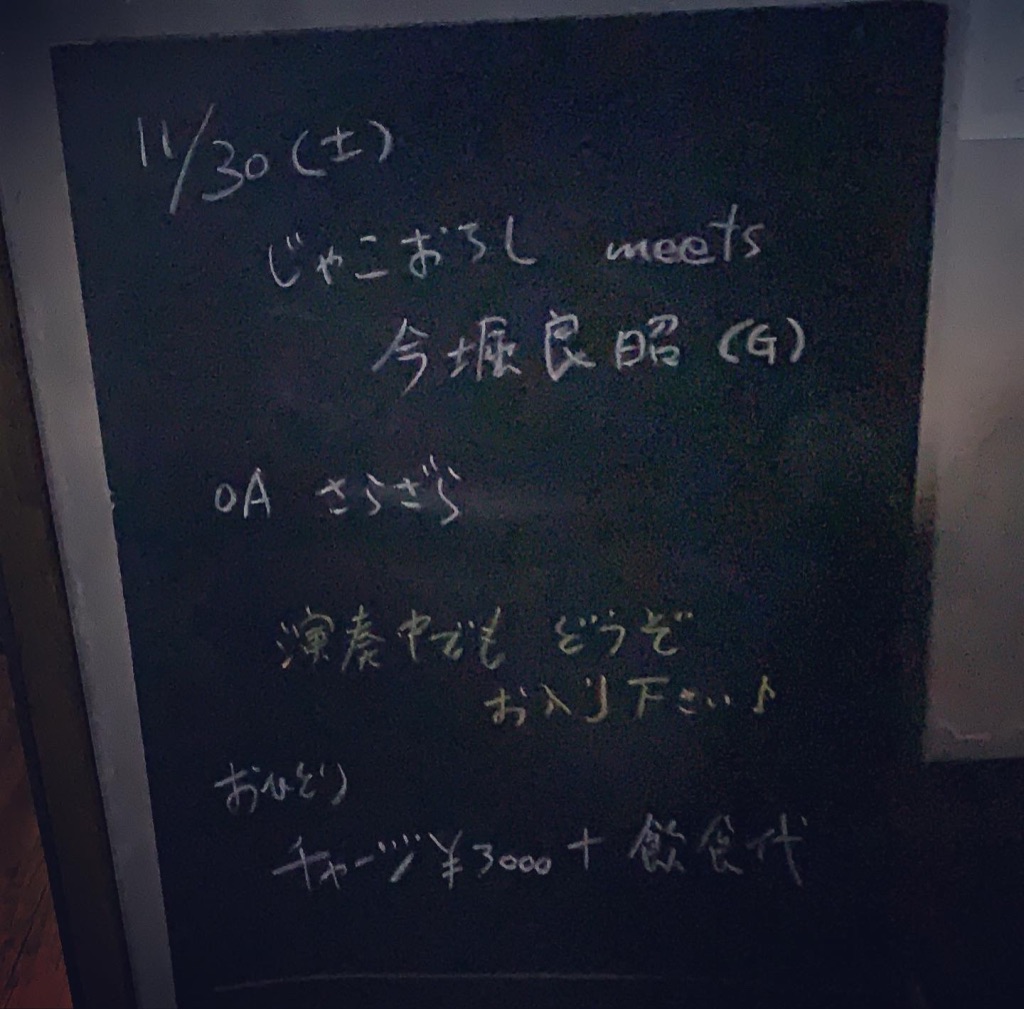 11/30(土)
じゃこおろし meets
今堀良昭(G)
OA さらざら
演奏中でも どうぞ
お入り下さい♪
おひとり
チャージ¥3000+飲食代